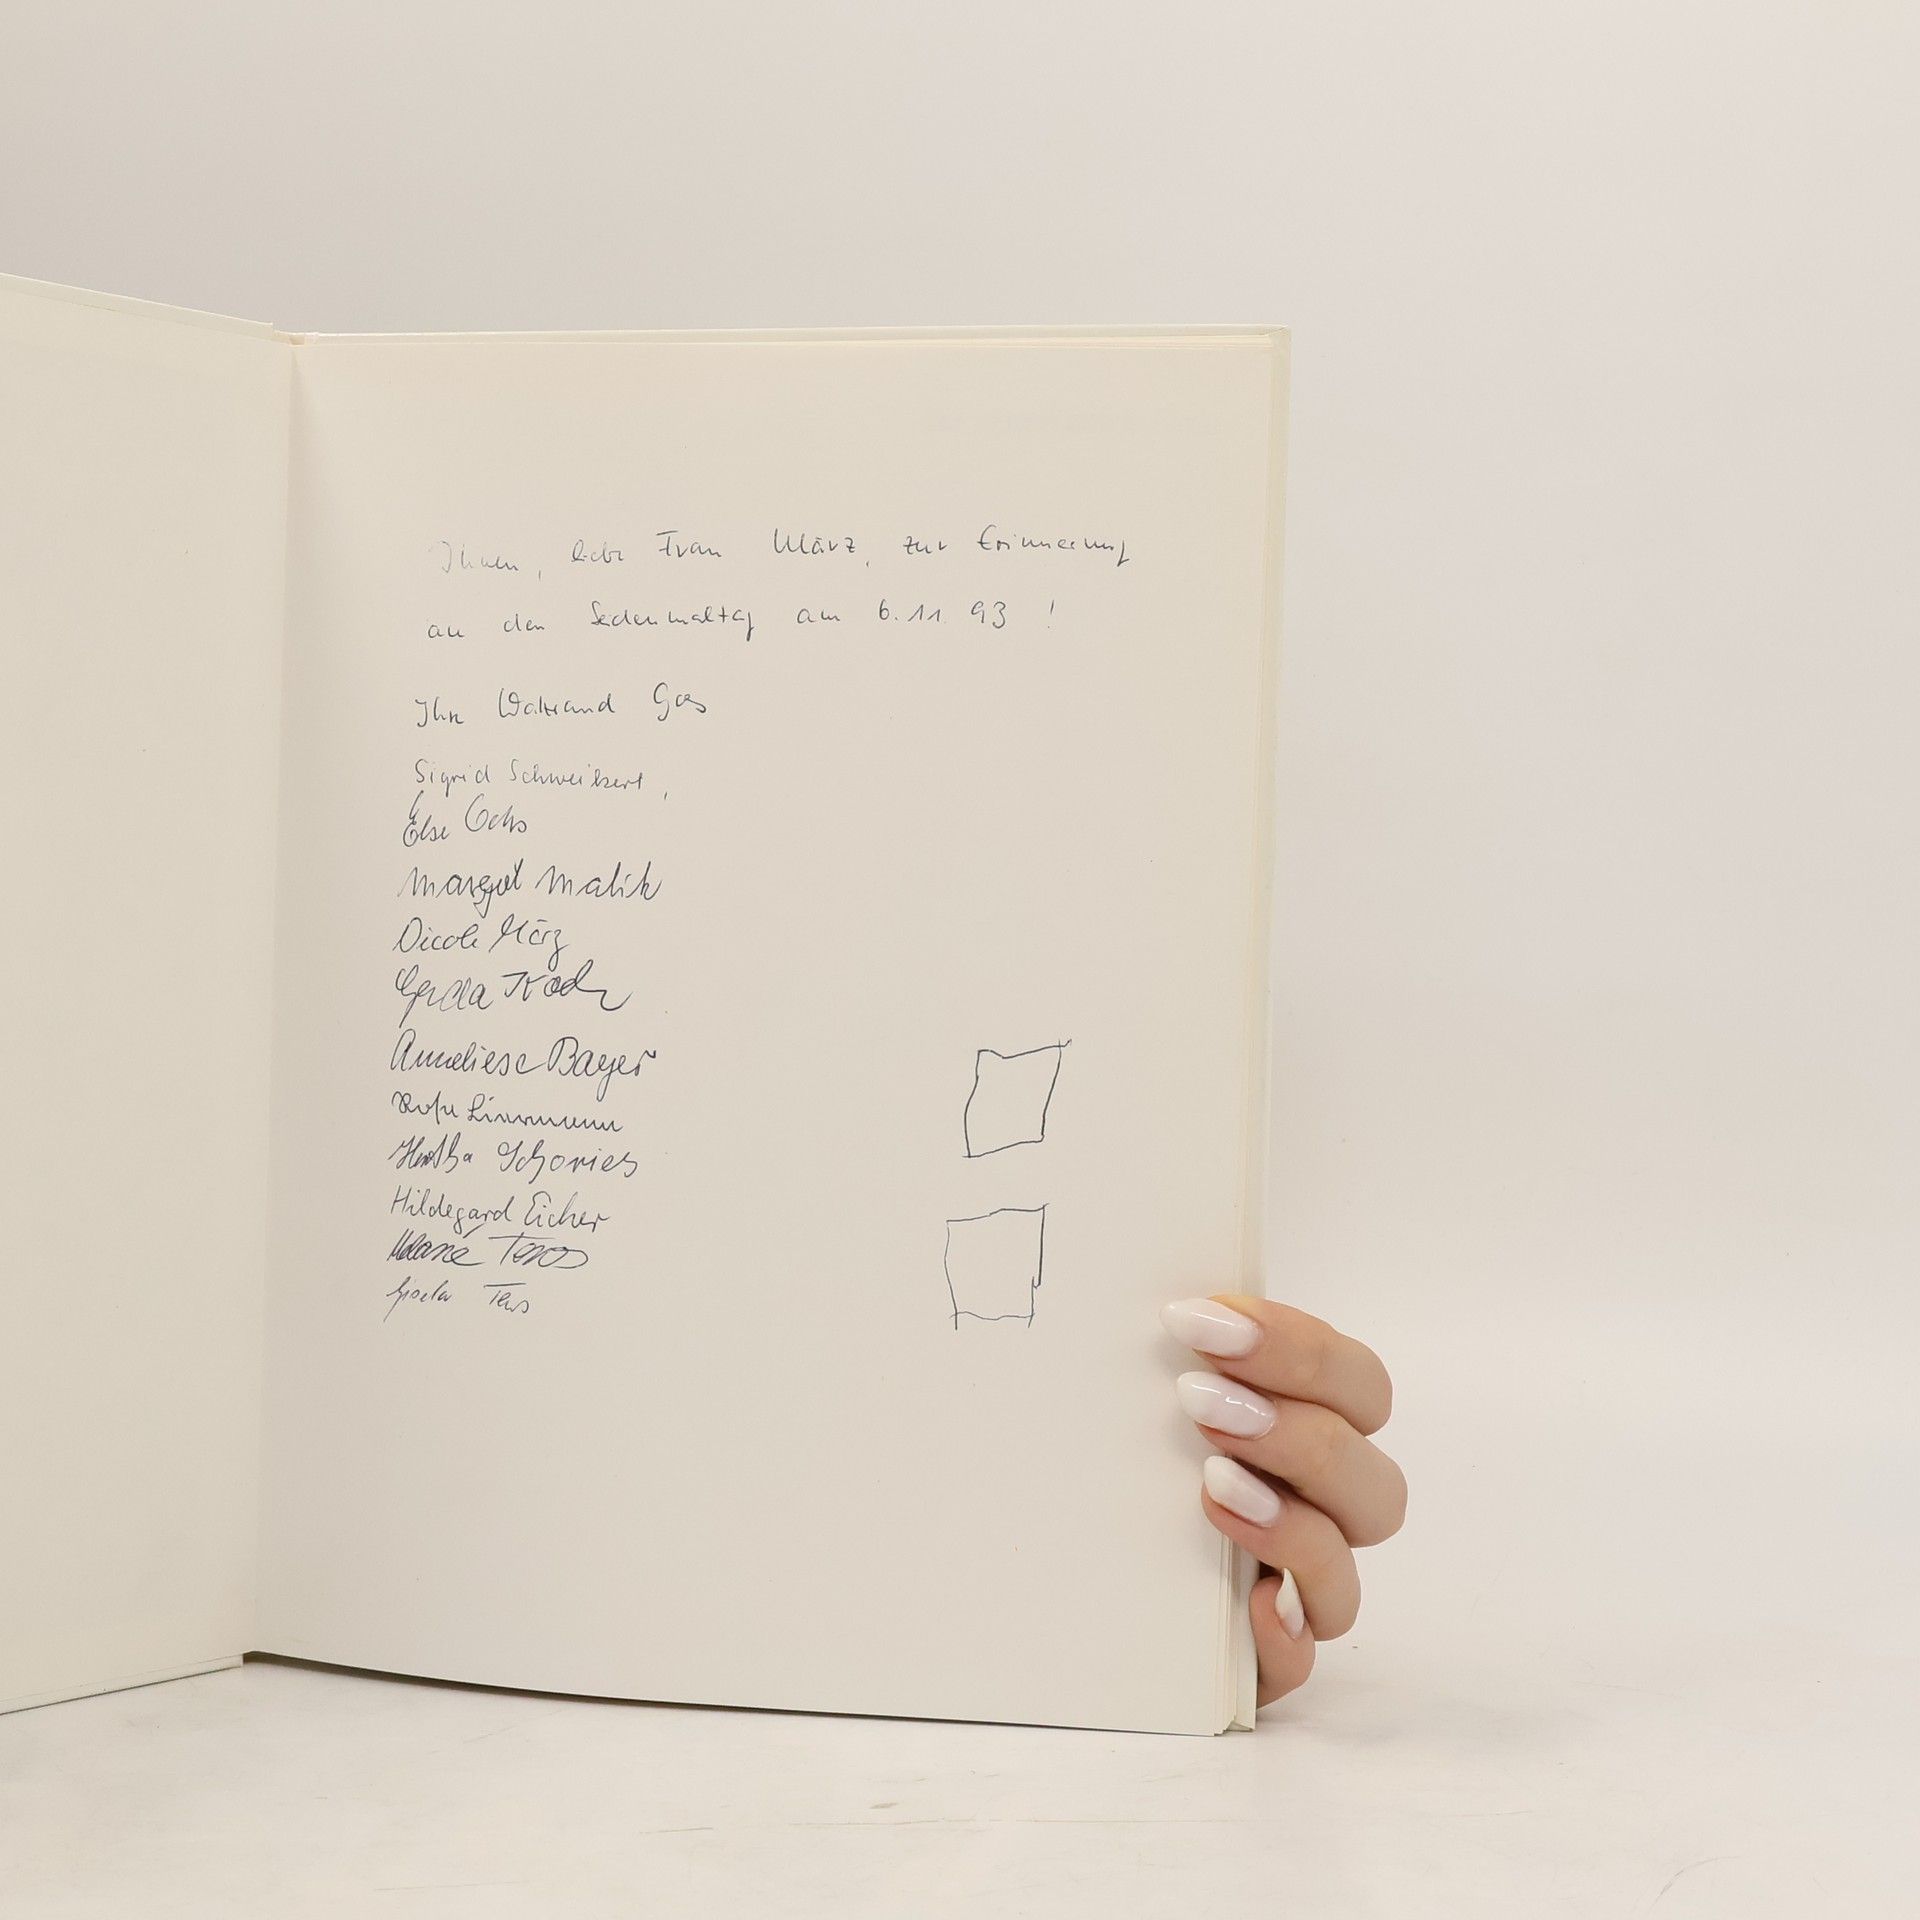 Ihnen, liebe Frau März, zur Erinnerung
an den Seidenmaltag am 6.11.93!
Ihre Waltraud
Sigrid Schweikert,
Else Ochs
Margot Malik
Nicole März
Gerda Koch
Anneliese Bayer
Hertha
Hildegard Eicher
Melanie
Gisela